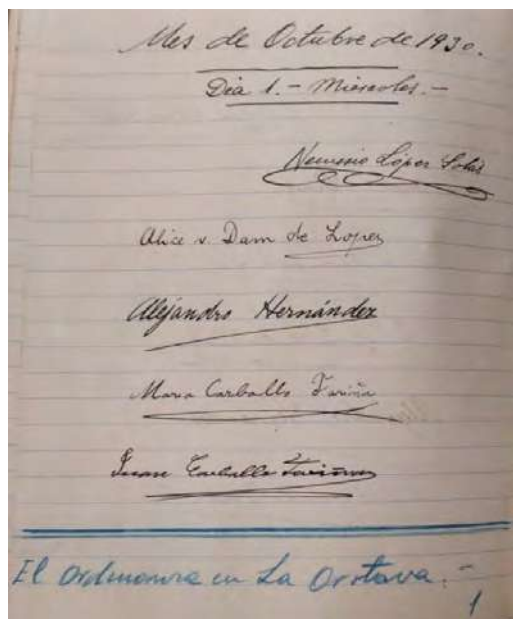 Mes de Octubre de 1930.
Dia 1. - Miercoles. -
Nemesio López Solas
Alice v. Dam de Lopez
Alejandro Hernández
Maria Carballo Fariña
Carballo Fariña
El en La Orotava. -
1